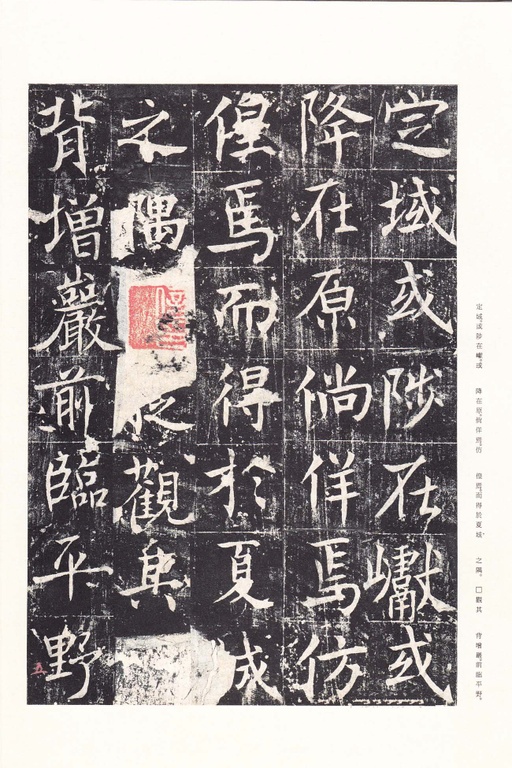 定域或陟在巘或
降在原倘佯焉仿
偟焉而得於夏成
之隅觀其
背增巖前臨平野
五
定城，或陟在巘，或　降在原，倘佯焉，仿　偟焉，而得於夏城　之隅。□觀其　背增巖，前臨平野。